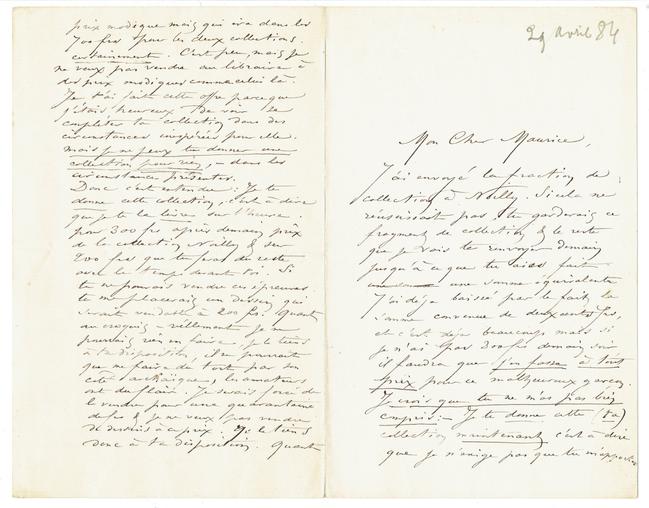 29 avril 84
Mon Cher Maurice,
J'ai envoyé la fraction de
collection à Noilly. Si cela ne
réussissait pas tu garderais ce
fragment de collection & le reste
que je vais te envoyer demain
jusqu'à ce que tu aies fait
une somme équivalente
J'ai déjà baissé par le fait la
somme convenue de deux cents frs,
et c'est déjà beaucoup mais si
je n'ai pas 300 fr demain soir
il faudra que j'en fasse à tout
prix pour ce malheureux garçon.
Je crois que tu ne m'as pas bien
compris. – Je te donne cette (ta)
collection maintenant c'est à dire
que je n'exige pas que tu m'apportes
prix modique mais qui ira dans les
700 frs pour les deux collections.
certainement. C'est peu, mais je
ne veux pas vendre au libraire à
des prix modiques comme celui là.
Je t'ai fait cette offre parce que
j'étais heureux de voir se
compléter ta collection dans des
circonstances inespérées pour elle.
mais je ne peux te donner une
collection pour rien, – dans les
circonstances présentes.
Donc c'est entendu : Je te
donne cette collection, c'est à dire
que je te la livre sur l'heure.
pour 300 frs après demain prix
de la collection Noilly & des
200 frs que tu feras du reste
avec le temps devant toi. Si
tu ne pouvais vendre ces épreuves
tu me placerais un dessin qui
serait vendable à 200 frs. Quant
au croquis – réellement je ne
pourrais rien en faire. je le tiens
à ta disposition, il ne pourrait
que me faire du tort par son
côté archaïque, les amateurs
ont du flair. Je serais forcé de
le vendre pour une quarantaine
de frs & je ne veux pas vendre
de dessins à ce prix. Je le tiens
donc à ta disposition. Quant